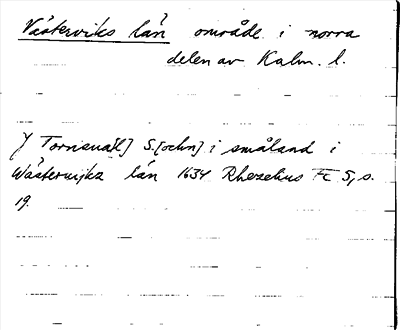 Västerviks län område i norra
delen av Kalm. l.
J Tornsual[l] S[ochn] i småland i
Wästerwijkz län 1634 Rhezelius FC 5, s.
19